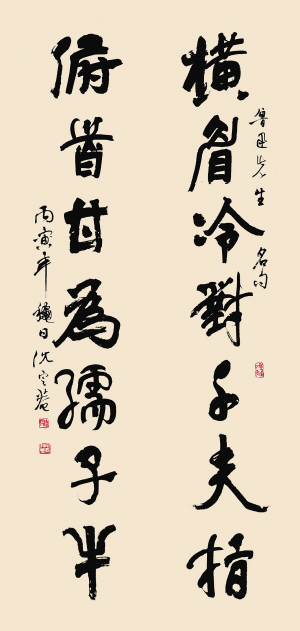 魯迅先生名句
橫眉冷對千夫指
俯首甘為孺子牛
丙寅年穐日沈定庵